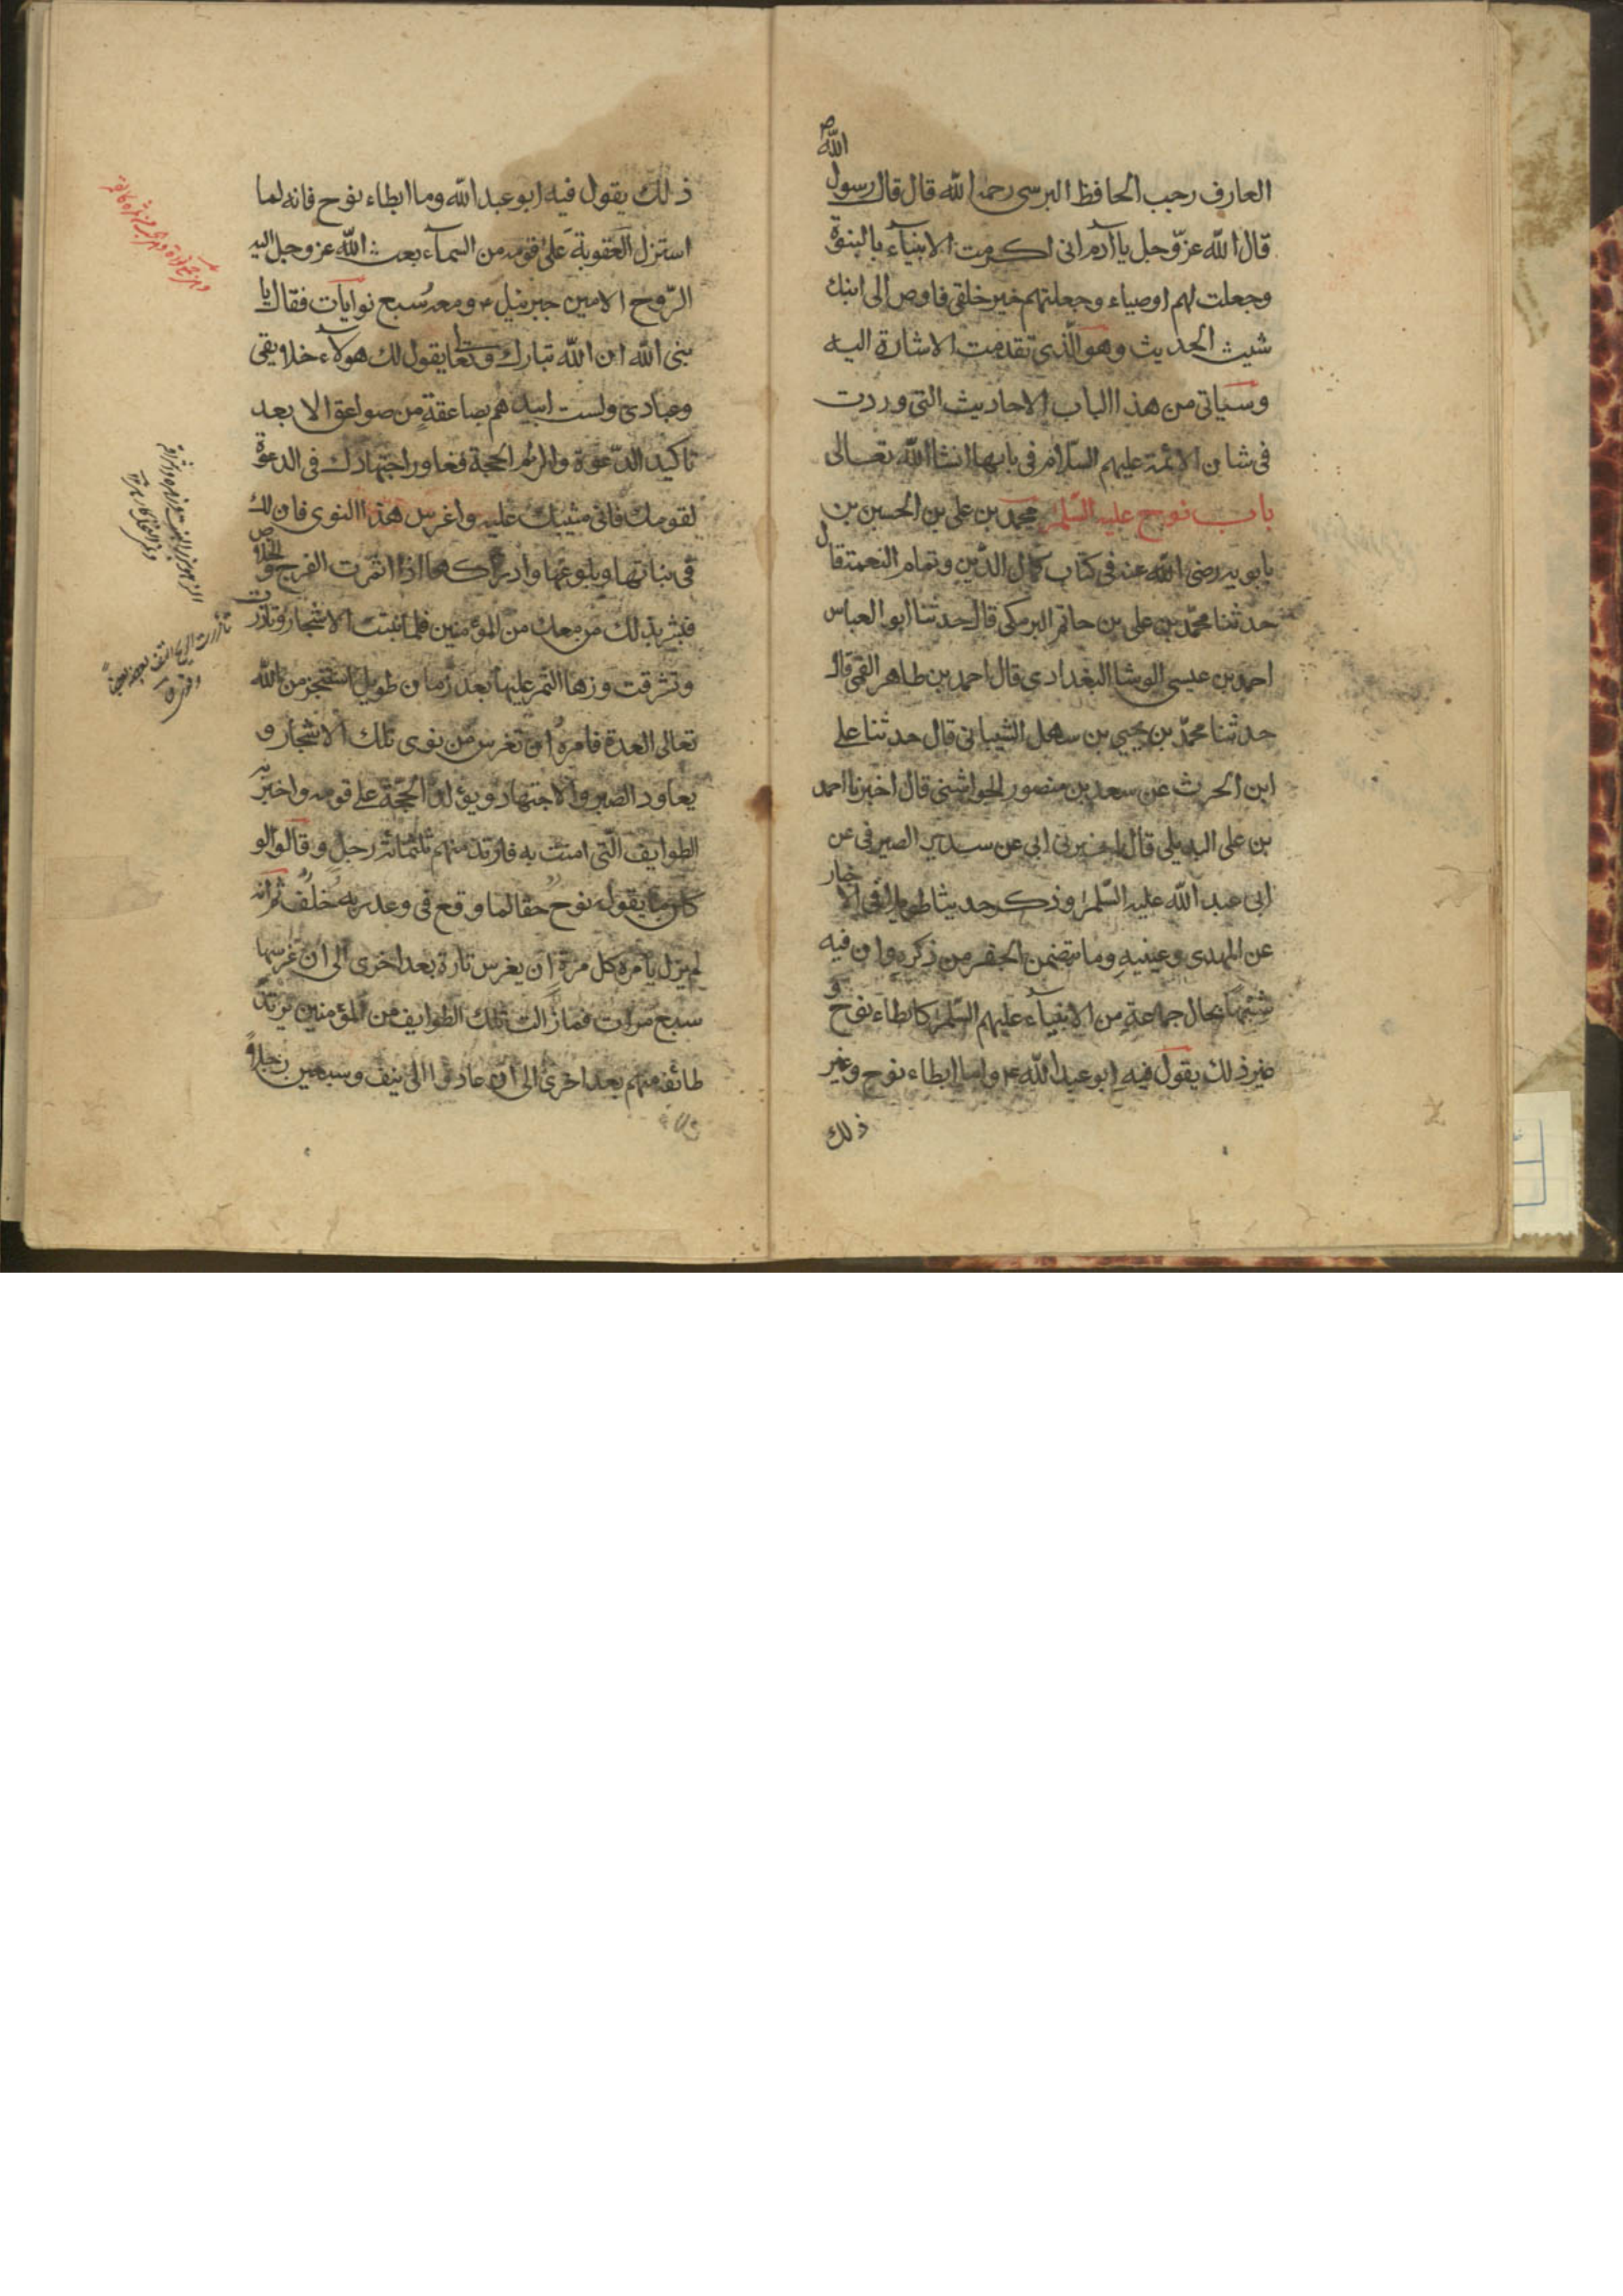 العارف رجب الحافظ البرسی رحمه الله قال قال رسول الله ص
قال الله عزّ وجل یا آدم انی اکرمت الانبیآء بالنبوة
وجعلت لهم اوصیاء وجعلتهم خیر خلقی فاوص الی ابنك
شیث الحدیث وهو الّذی تقدمت الاشارة الیه
وسیاتی من هذا الباب الاحادیث التی وردت
فی شان الائمة علیهم السّلام فی بابها انشا الله تعالی
باب نوح علیه السّلم محمد بن علی بن الحسین بن
بابویه رضی الله عنه فی کتاب کمال الدّین وتمام النعمة قال
حدثنا محمّد بن علی بن حاتم البرمکی قال حدثنا ابو العباس
احمد بن عیسی الوشا البغدادی قال احمد بن طاهر القمی قال
حدثنا محمّد بن یحیی بن سهل الشیبانی قال حدثنا علی
ابن الحرث عن سعد بن منصور الجواشنی قال اخبرنا احمد
بن علی البدیلی قال اخبرنی ابی عن سدیر الصیرفی عن
ابی عبد الله علیه السّلم وذکر حدیثا طویلا فی الاخبار
عن المهدی وغیبته وما تضمن الجفر من ذکره وان فیه
شبها بحال جماعة من الانبیآء علیهم السّلم کابطاء نوح و
غیر ذلك یقول فیه ابو عبد الله ع واما ابطاء نوح وغیر
ذلك
ذلك یقول فیه ابو عبد الله وما ابطاء نوح فانه لما
استزل العقوبة علی قومه من السمآء بعث الله عز وجل الیه
الرّوح الامین جبرئیل ع ومعه سبع نوایات فقال یا
نبی الله ان الله تبارك وتعا یقول لك هولاء خلایقی
وعبادی ولست ابیدهم بصاعقة من صواعق الا بعد
تاکید الدّعوة والزام الحجة فعاود اجتهادك فی الدعوة
لقومك فانی مثیبك علیه واغرس هذا النوی فان لك
فی نباتها وبلوغها وادراکها اذا اثمرت الفرج والخلاص
فبشر بذلك من معك من المؤمنین فلما نبتت الاشجار وتازرت
وتشرقت وزها الثمر علیها بعد زمان طویل استنجز من الله
تعالی العدة فامره ان تغرس من نوی تلك الاشجار و
یعاود الصبر والاجتهاد ویؤکد الحجّة علی قومه واخبر
الطوایف الّتی امنت به فارتد منهم ثلثمائة رجل وقالوا لو
کان ما یقول نوح حقا لما وقع فی وعد ربه خلف ثم انه
لم یزل یأمره کل مرة ان یغرس تارة بعد اخری الی ان غرسها
سبع مرات فما زالت تلك الطوایف من المؤمنین ترتد
طائفة منهم بعد اخری الی ان عادوا الی نیف وسبعین رجلا
تازرت الزرع التف بعضه بعضا